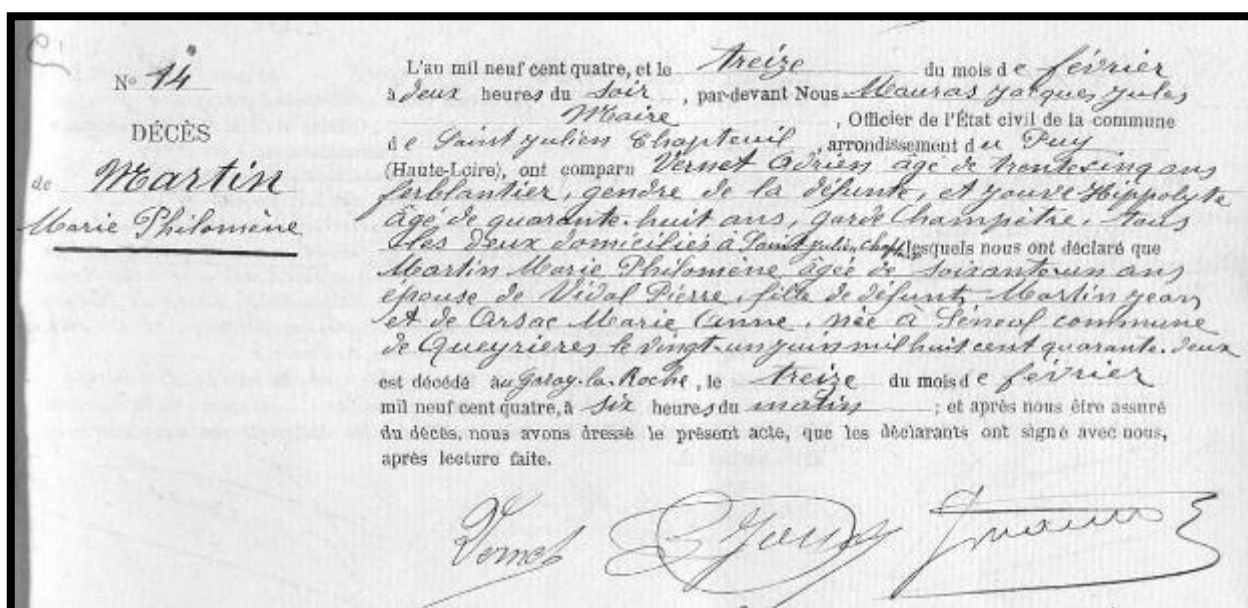 N° 14
DÉCÈS
de Martin
Marie Philomène
L'an mil neuf cent quatre, et le treize du mois de février
à deux heures du soir, par-devant Nous Mauras Jacques Jules
Maire, Officier de l'État civil de la commune
de Saint Julien Chapteuil, arrondissement du Puy
(Haute-Loire), ont comparu Vernet Adrien âgé de trente cinq ans
ferblantier, gendre de la défunte, et Jouve Hippolyte
âgé de quarante-huit ans, garde champêtre. tous
les deux domiciliés à Saint Julien Chapt. lesquels nous ont déclaré que
Martin Marie Philomène âgée de soixante un ans
épouse de Vidal Pierre, fille de défunt Martin Jean
et de Arsac Marie Anne, née à commune
de Queyrières le vingt-un juin mil huit cent quarante-deux
est décédé au la Roche, le treize du mois de février
mil neuf cent quatre, à six heures du matin ; et après nous être assuré
du décès, nous avons dressé le présent acte, que les déclarants ont signé avec nous,
après lecture faite.
Vernet Jouve